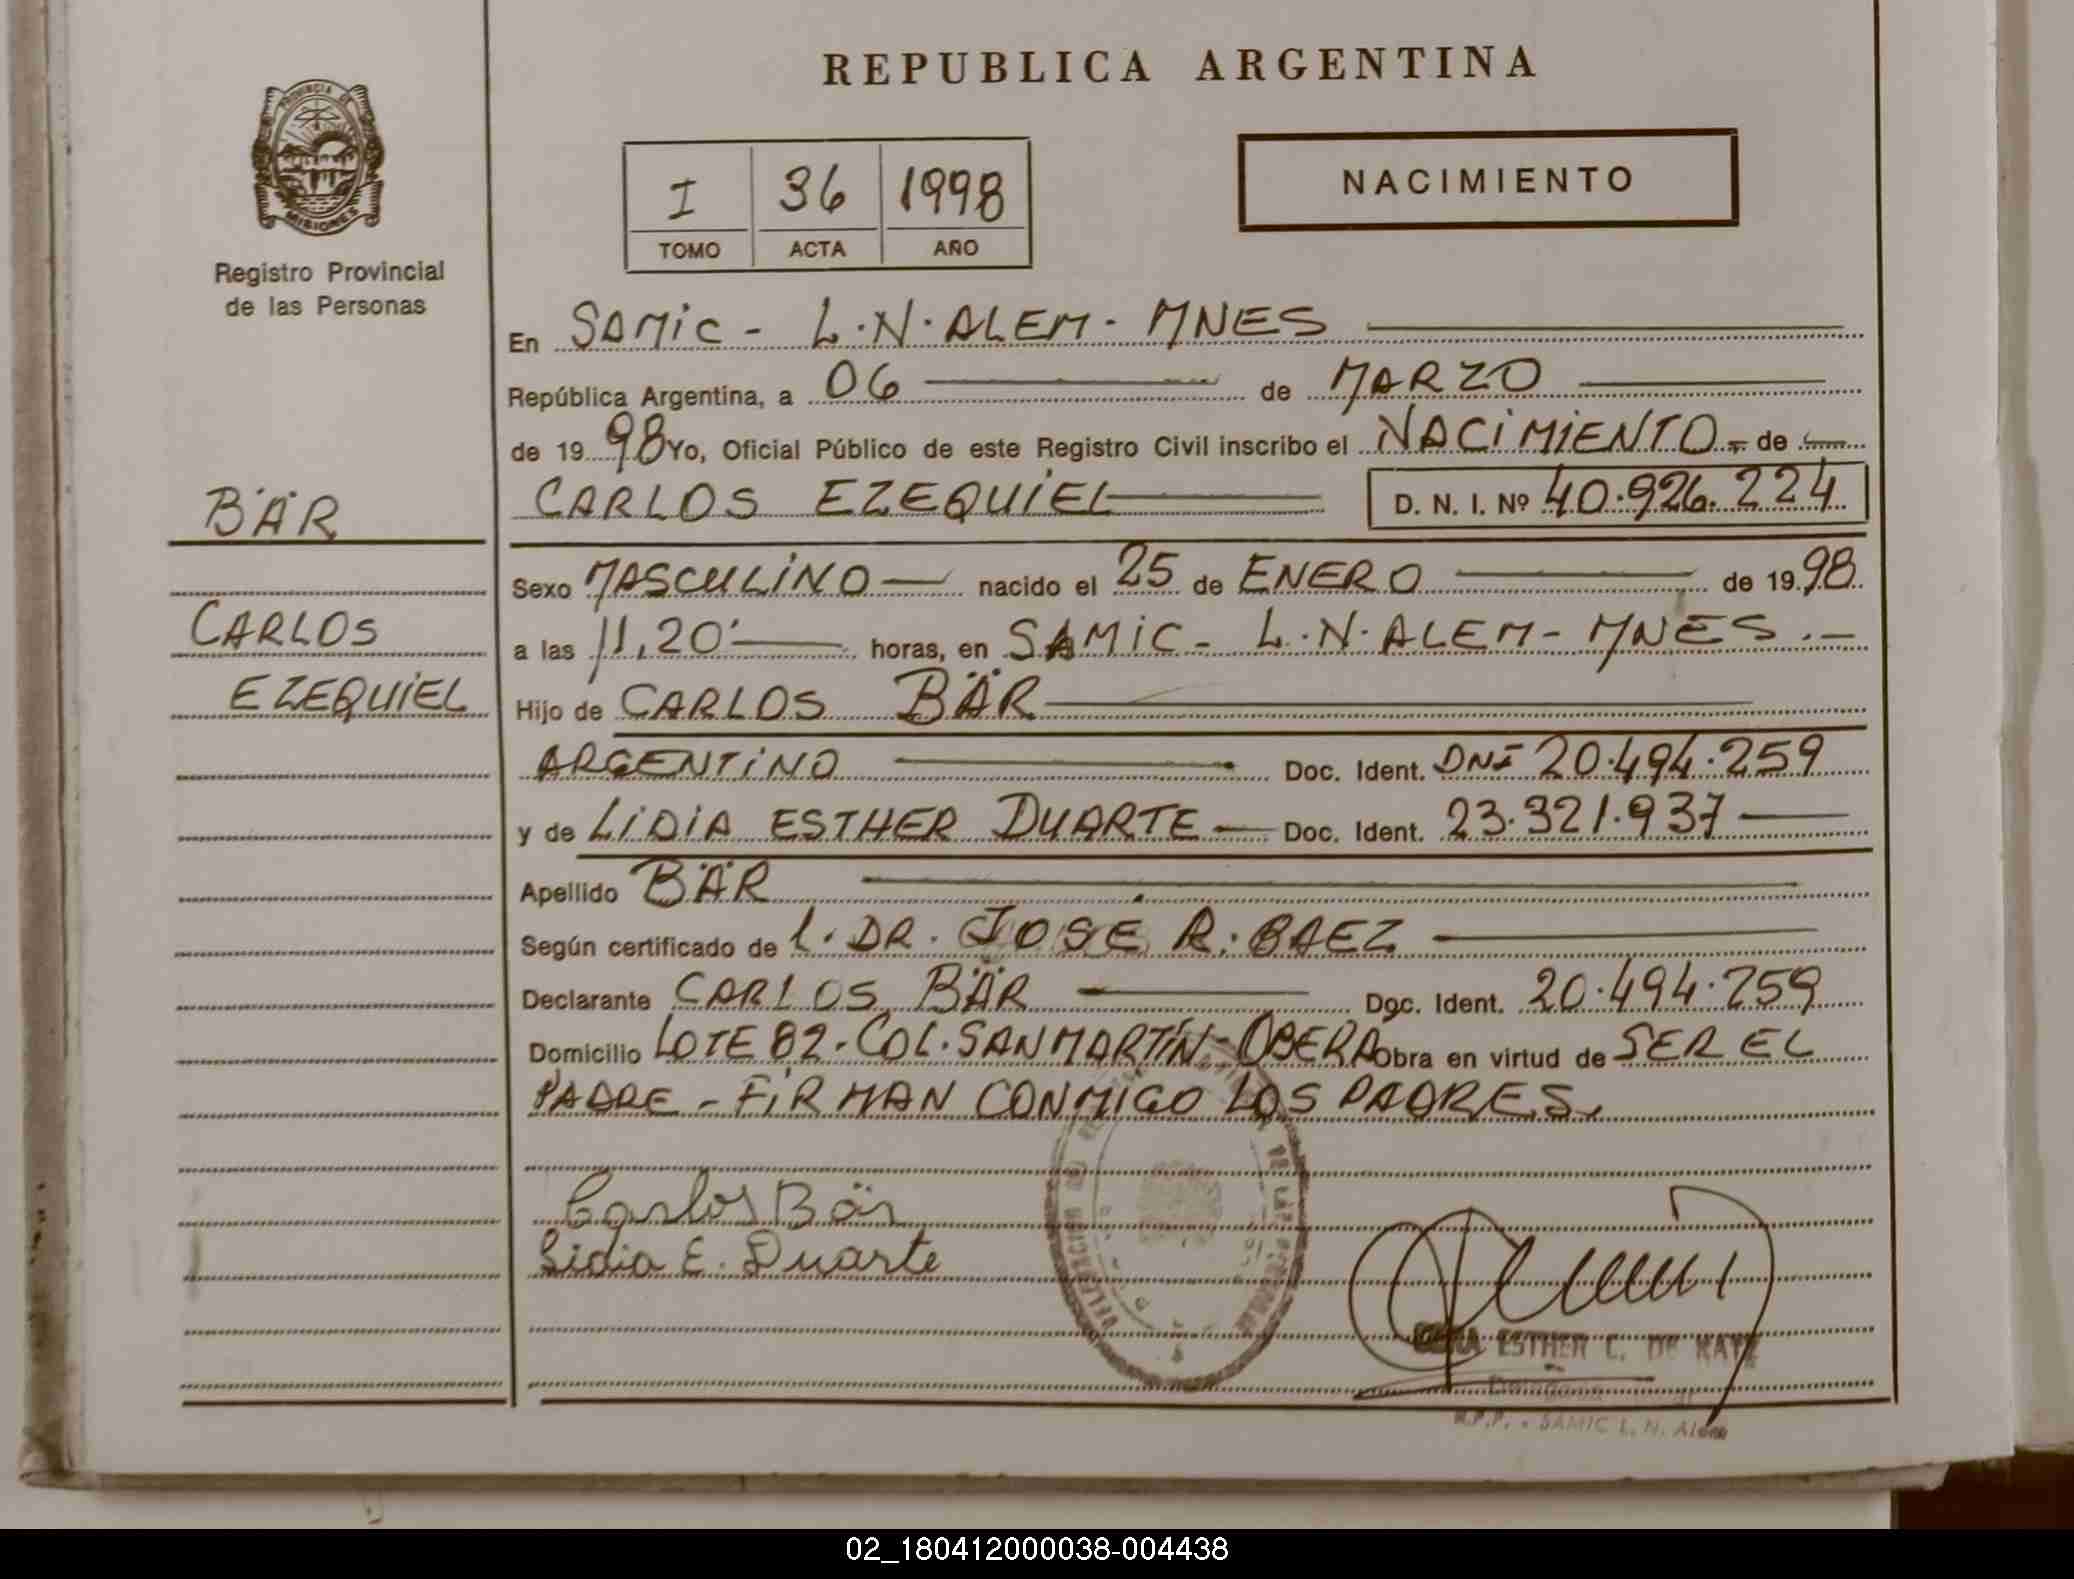 REPUBLICA ARGENTINA
PROVINCIA DE
MISIONES
Registro Provincial
de las Personas
I 36 1998
TOMO ACTA AÑO
NACIMIENTO
En SAMiC - L.N. ALEM - MNES
República Argentina, a 06 de MARZO
de 19 98 Yo, Oficial Público de este Registro Civil inscribo el NACiMiENTO - de
CARLOS EZEQUiEL D. N. I. Nº 40.926.224
BÄR
CARLOS
EZEQUiEL
Sexo MASCULiNO nacido el 25 de ENERO de 19 98
a las 11,20' horas, en SAMiC - L.N. ALEM - MNES.-
Hijo de CARLOS BÄR
ARGENTiNO Doc. Ident. DNI 20.494.259
y de LiDiA ESTHER DUARTE Doc. Ident. 23.321.937
Apellido BÄR
Según certificado de l. DR. JOSE R. BAEZ
Declarante CARLOS BÄR Doc. Ident. 20.494.259
Domicilio LOTE 82 - COL. SAN MARTÍN - OBERA Obra en virtud de SER EL
PADRE - FiRMAN CONMiGO LOS PADRES.
Carlos Bär
Lidia E. Duarte
DELEGACION DE LAS PERSONAS
ESTHER C. DE
R.P.P. - SAMIC L. N. Alem
02_180412000038-004438